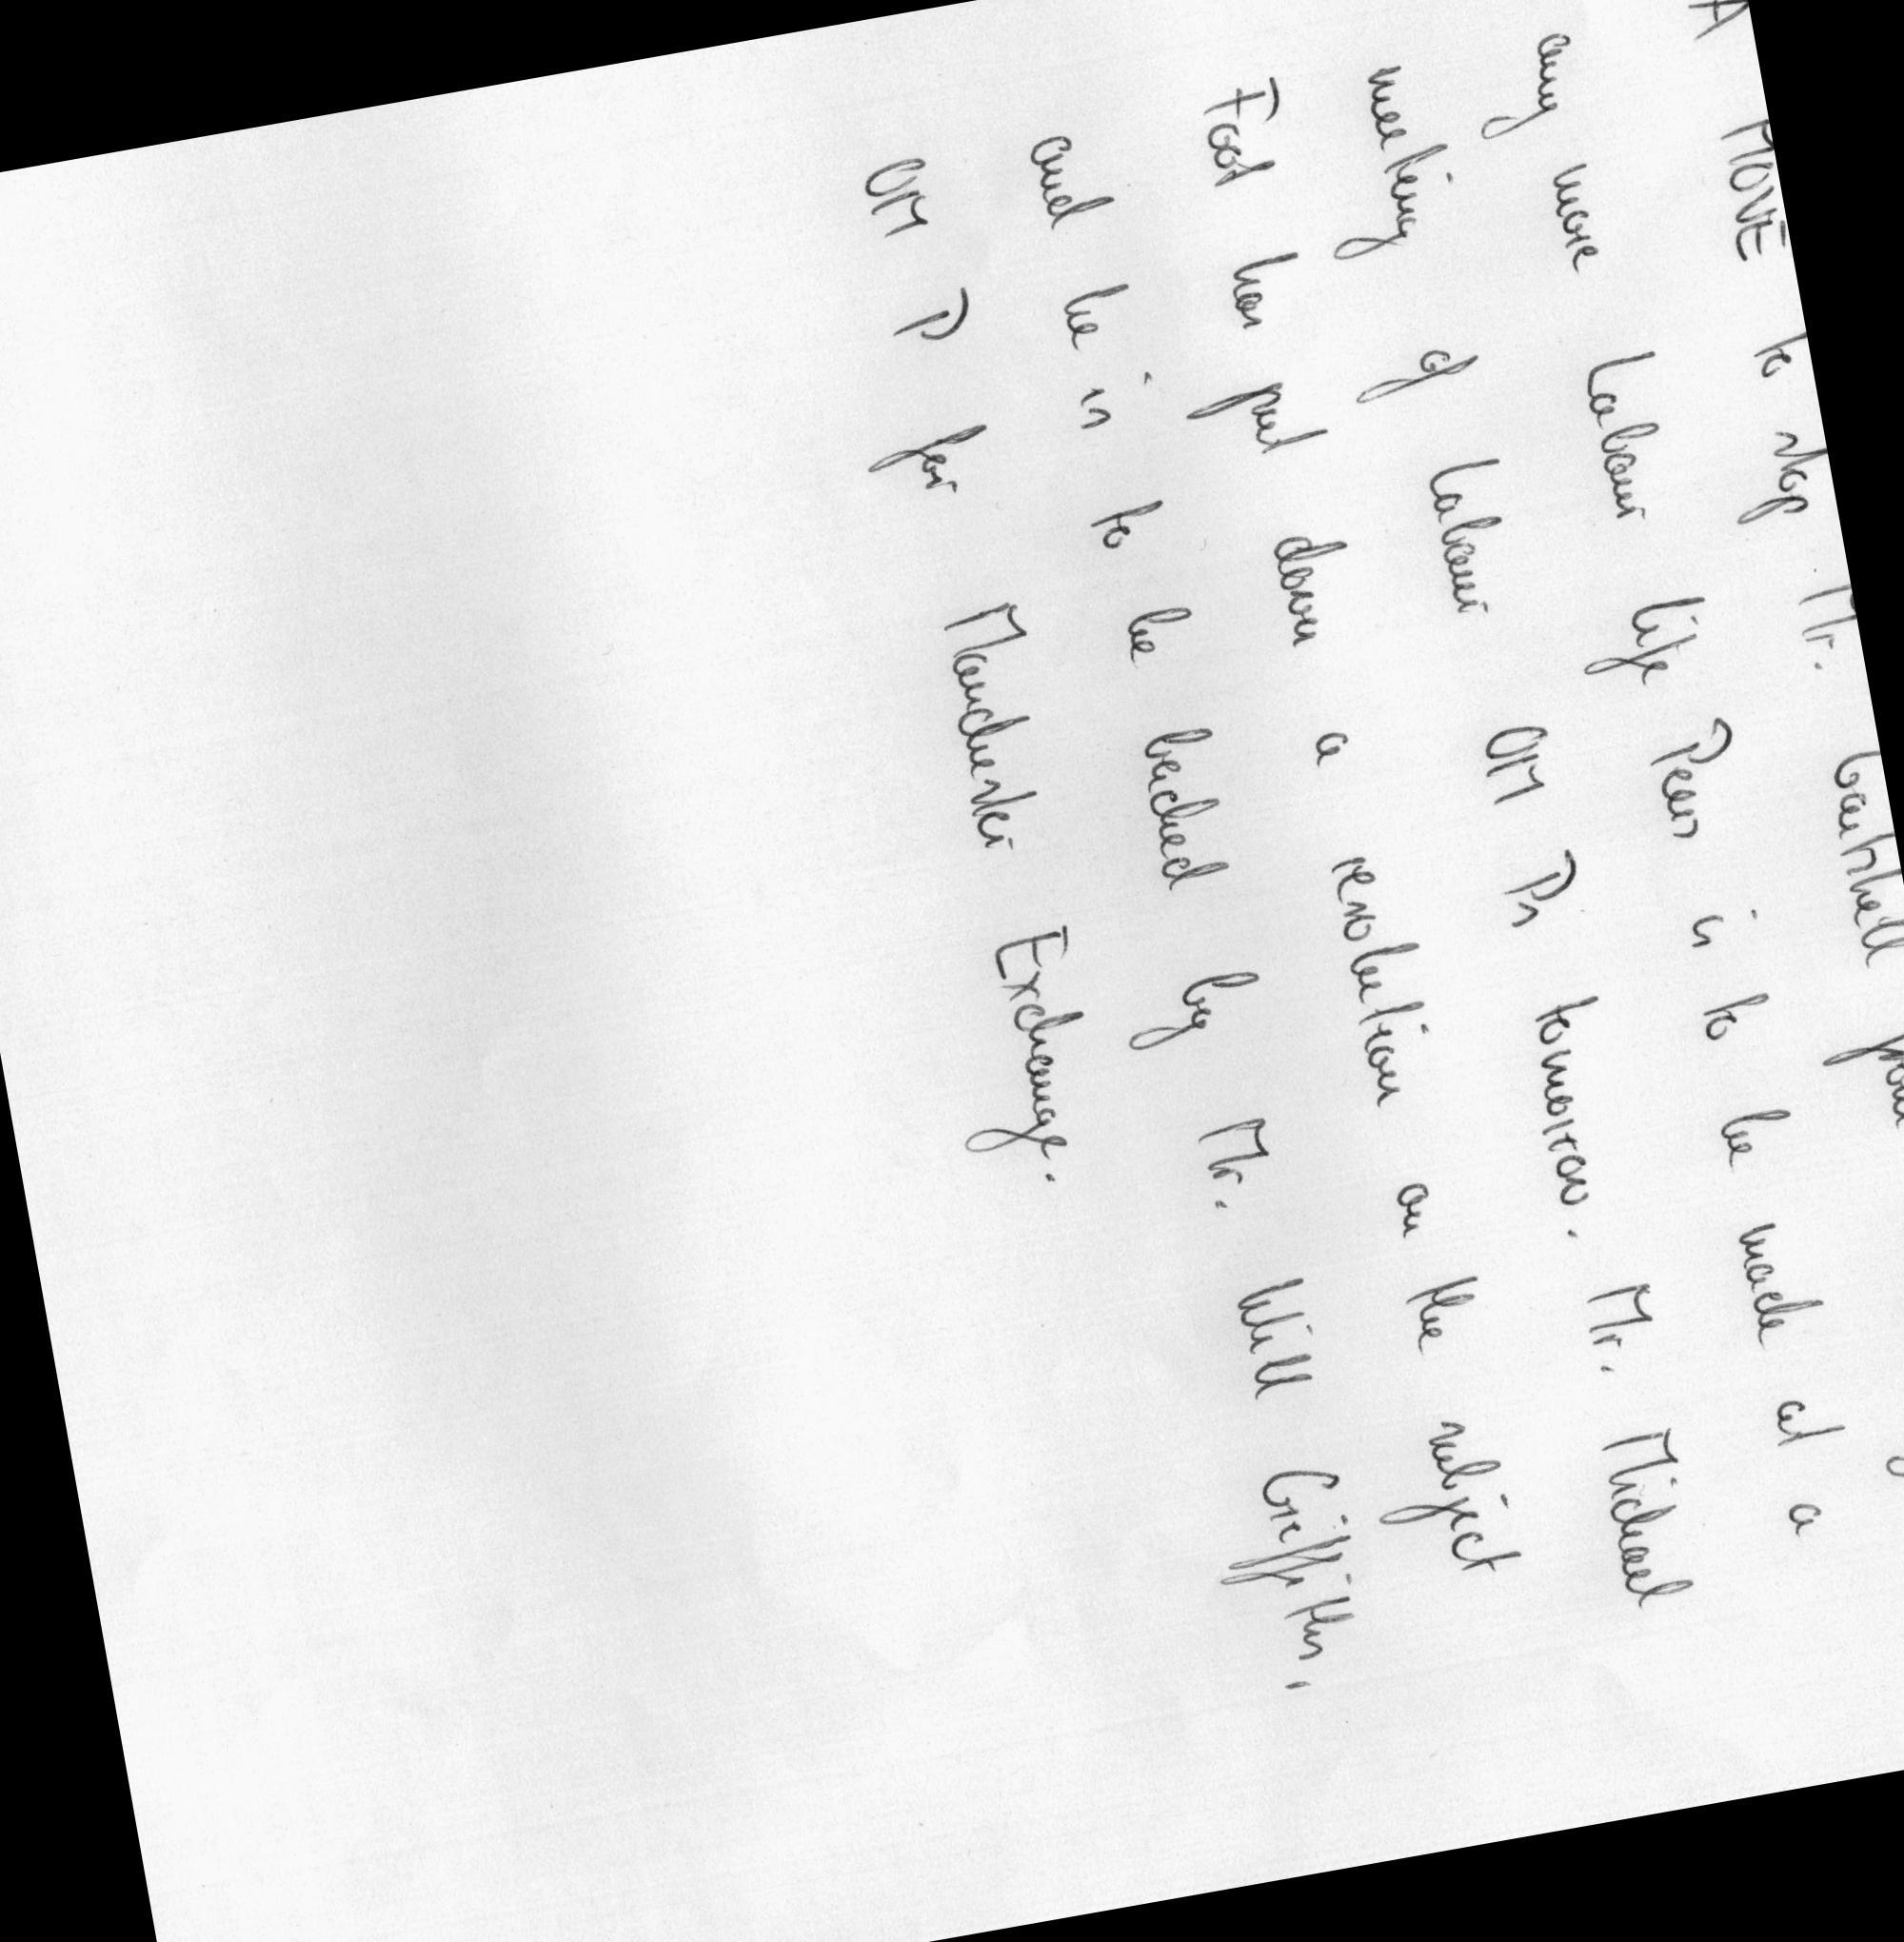 A MOVE to stop Mr. Gaitskell from
any more Labour Life Peers is to be made at a
meeting of Labour OM Ps tomorrow. Mr. Michael
Foot has put down a resolution on the subject
and he is to be backed by Mr. Will Griffiths,
OM P for Manchester Exchange.